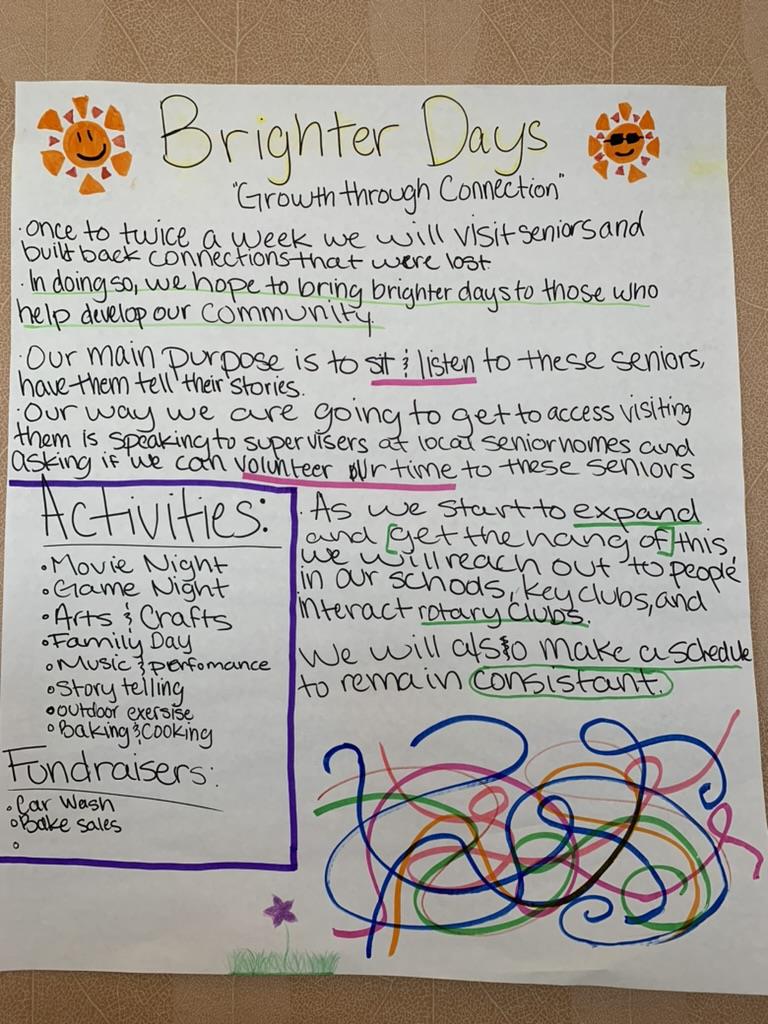 Brighter Days
"Growth through Connection"
· Once to twice a week we will visit seniors and
built back connections that were lost.
· In doing so, we hope to bring brighter days to those who
help develop our community.
· Our main purpose is to sit & listen to these seniors,
have them tell their stories.
· Our way we are going to get to access visiting
them is speaking to supervisers at local senior homes and
asking if we can volunteer our time to these seniors
Activities:
• Movie Night
• Game Night
• Arts & Crafts
• Family Day
• Music & perfomance
• Story telling
• outdoor exersise
• Baking & Cooking
Fundraisers:
• Car Wash
• Bake sales
· As we start to expand
and [get the hang of] this,
we will reach out to people
in our schools, key clubs, and
interact rotary clubs.
We will also make a schedule
to remain consistant.